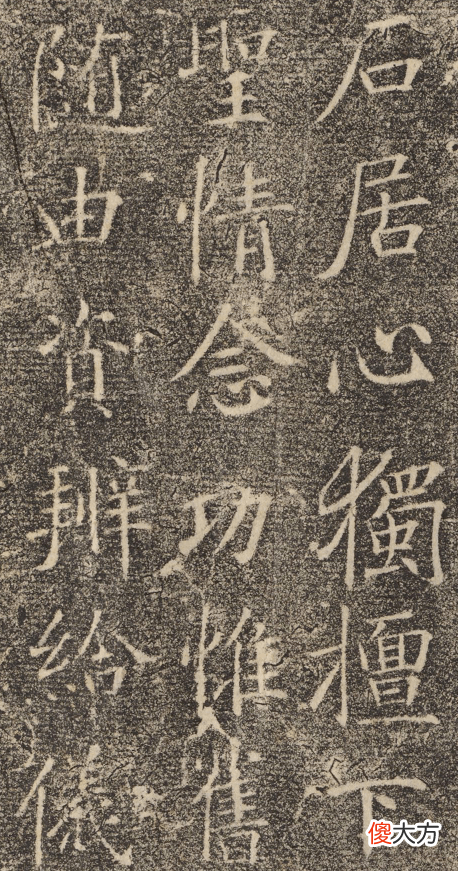 石居心獨擅下
聖情念功惟舊
随由資辨給儀
傻大方